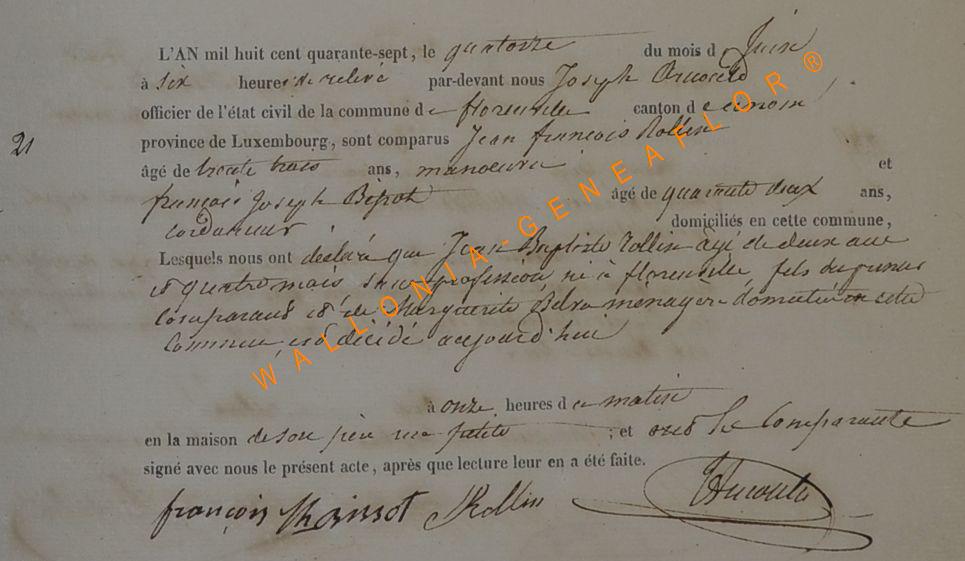 L'AN mil huit cent quarante-sept, le quatorze du mois de Juin
à six heures de relevé par-devant nous Joseph
officier de l'état civil de la commune de florenville canton de
21
province de Luxembourg, sont comparus Jean françois Rollin
âgé de trente trois ans, manoeuvre et
françois Joseph âgé de quarante deux ans,
cordonnier domiciliés en cette commune,
Lesquels nous ont déclaré que Jean Baptiste Rollin âgé de deux ans
et quatre mois sans profession né à florenville fils du premier
comparant et de Marguerite ménagère domicilié en cette
commune, est décédé aujourd'hui
à onze heures de matin
en la maison de son père rue petite ; et ont les comparants
signé avec nous le présent acte, après que lecture leur en a été faite.
françois JRollin
WALLONIA-GENEAFLOR ®